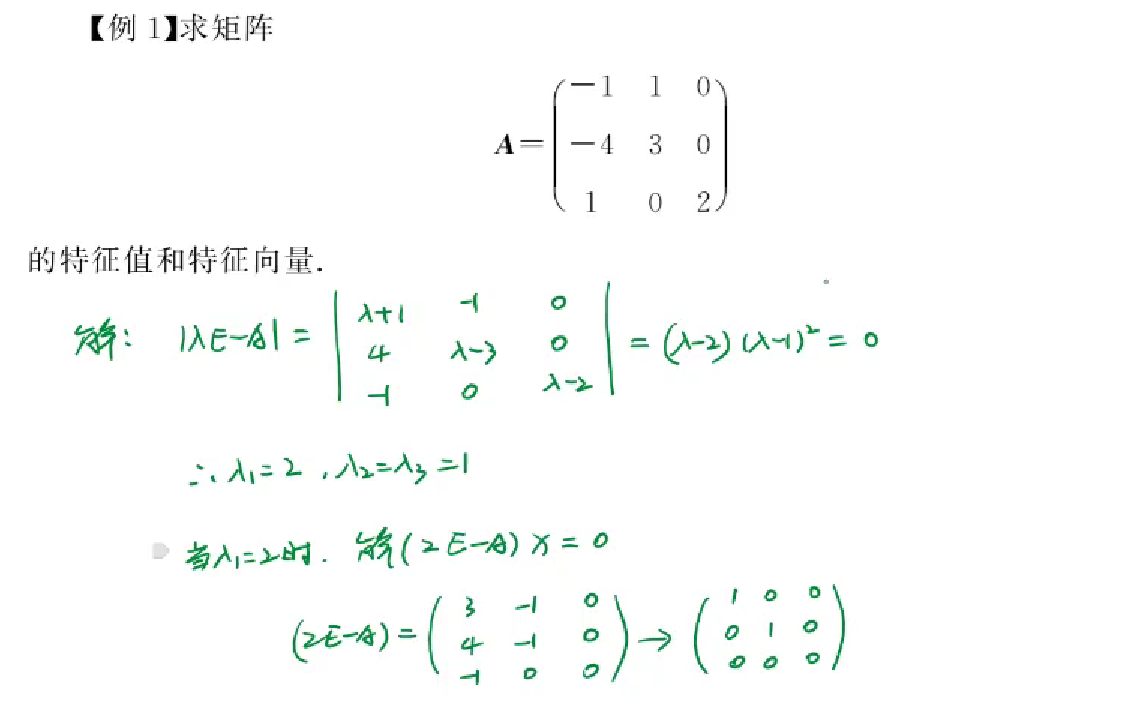 【例 1】求矩阵
A=
−1 1 0
−4 3 0
1 0 2
的特征值和特征向量.
解: |λE-A| = | λ+1 -1 0 | = (λ-2)(λ-1)² = 0
4 λ-3 0
-1 0 λ-2
∴ λ₁=2 , λ₂=λ₃=1
当λ₁=2时. 解(2E-A) x = 0
(2E-A) = ( 3 -1 0 ) → ( 1 0 0 )
4 -1 0 0 1 0
-1 0 0 0 0 0